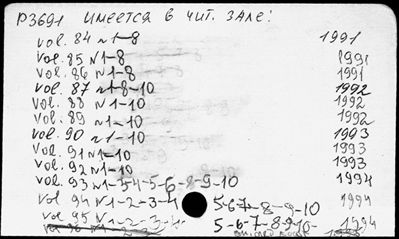 P3691 имеется в чит. зале:
vol. 84 N1-8 1991
vol. 85 N1-8 1991
vol. 86 N1-8 1991
vol. 87 N1-8-10 1992
vol. 88 N1-10 1992
vol. 89 N1-10 1992
vol. 90 N1-10 1993
vol. 91 N1-10 1993
vol. 92 N1-10 1993
vol. 93 N1-54-5-6-8-9-10 1994
vol 94 N1-2-3-4 5-6-7-8-9-10 1994
vol 95 N1-2-3-4 5-6-7-8-9-10- 1994